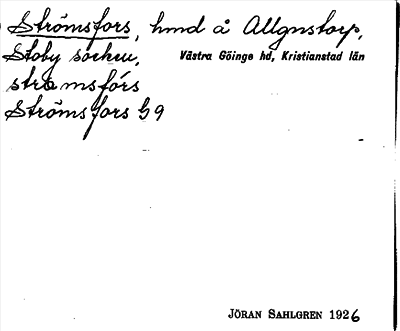 Strömsfors, hmd å Allgustorp,
Stoby socken, Västra Göinge hd, Kristianstad län
strömsfórs
Strömsfors G9
JÖRAN SAHLGREN 1926